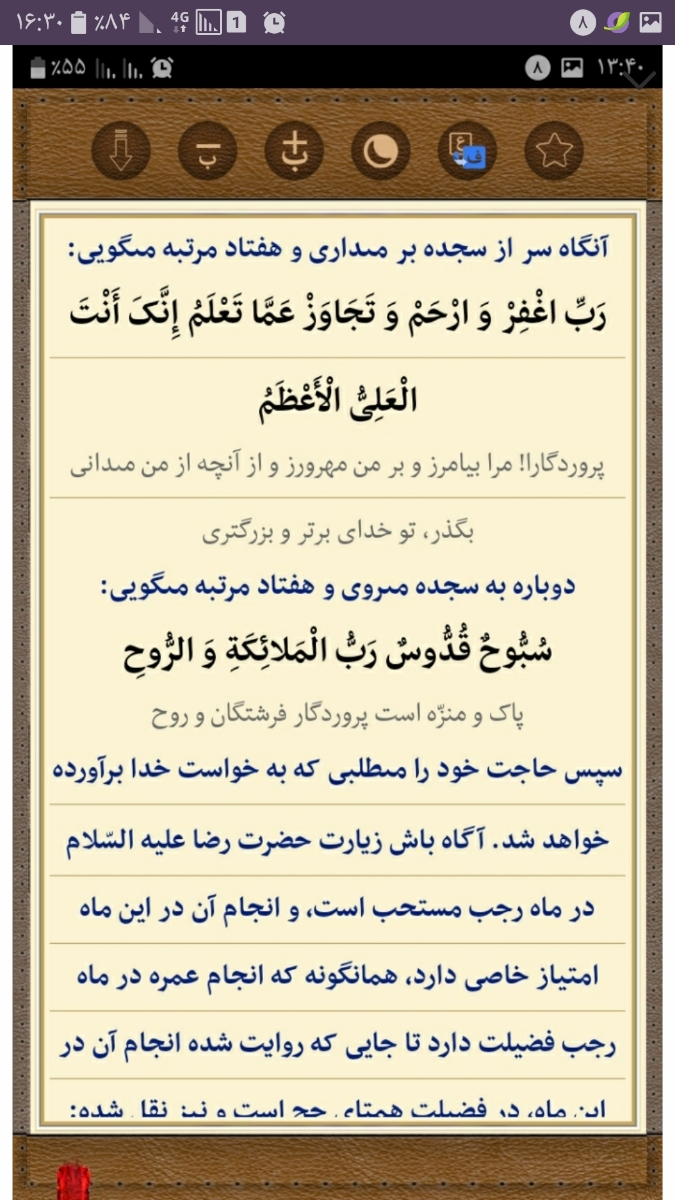 ۱۶:۳۰ ٪۸۴ 4G 1 ۸
٪۵۵ ۸ ۱۳:۴۰
ب ب ع ف
آنگاه سر از سجده بر مىدارى و هفتاد مرتبه مىگويى:
رَبِّ اغْفِرْ وَ ارْحَمْ وَ تَجَاوَزْ عَمَّا تَعْلَمُ إِنَّکَ أَنْتَ
الْعَلِىُّ الْأَعْظَمُ
پروردگارا! مرا بيامرز و بر من مهرورز و از آنچه از من مىدانى
بگذر، تو خداى برتر و بزرگترى
دوباره به سجده مىروى و هفتاد مرتبه مىگويى:
سُبُّوحٌ قُدُّوسٌ رَبُّ الْمَلائِکَةِ وَ الرُّوحِ
پاک و منزّه است پروردگار فرشتگان و روح
سپس حاجت خود را مىطلبى كه به خواست خدا برآورده
خواهد شد. آگاه باش زيارت حضرت رضا عليه السّلام
در ماه رجب مستحب است، و انجام آن در اين ماه
امتياز خاصى دارد، همانگونه كه انجام عمره در ماه
رجب فضيلت دارد تا جايى كه روايت شده انجام آن در
اين ماه، در فضيلت همتاى حج است و نيز نقل شده: